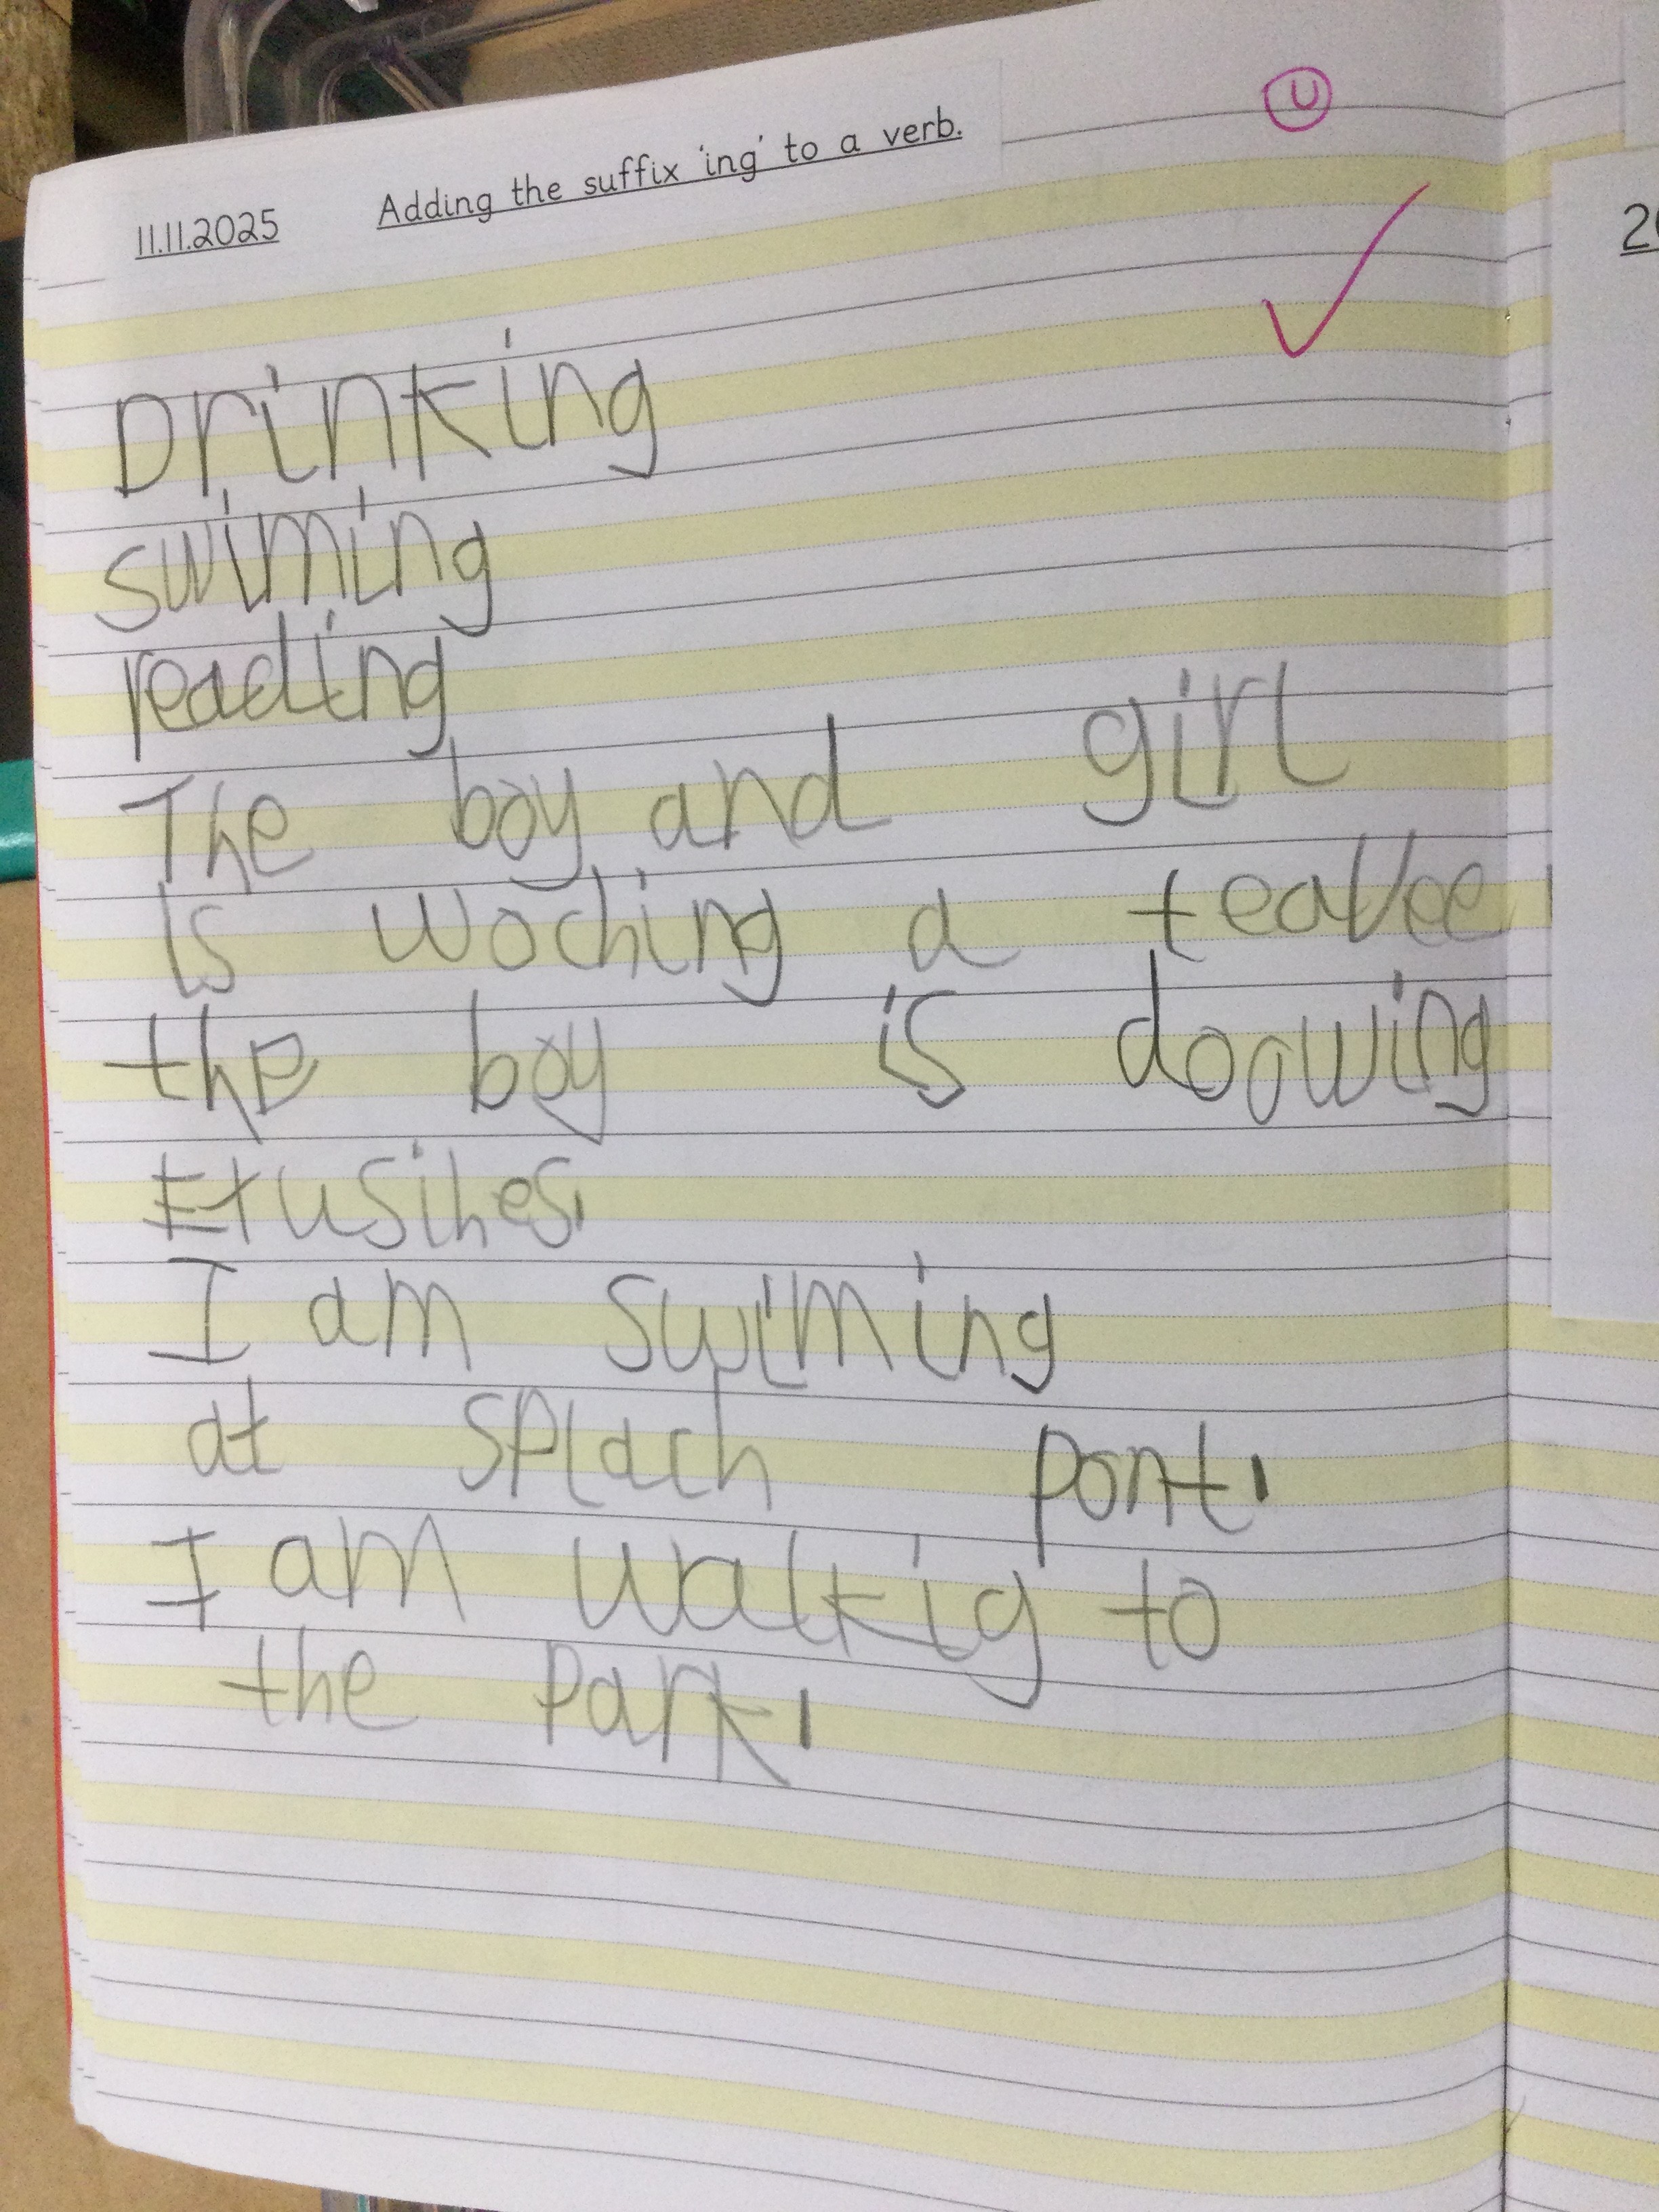 U
11.11.2025 Adding the suffix 'ing' to a verb.
20
Drinking
swiming
reading
The boy and girl
is woching a teavee
the boy is doowing
Etusihes.
I am swiming
at splach pont.
I am walkig to
the park.